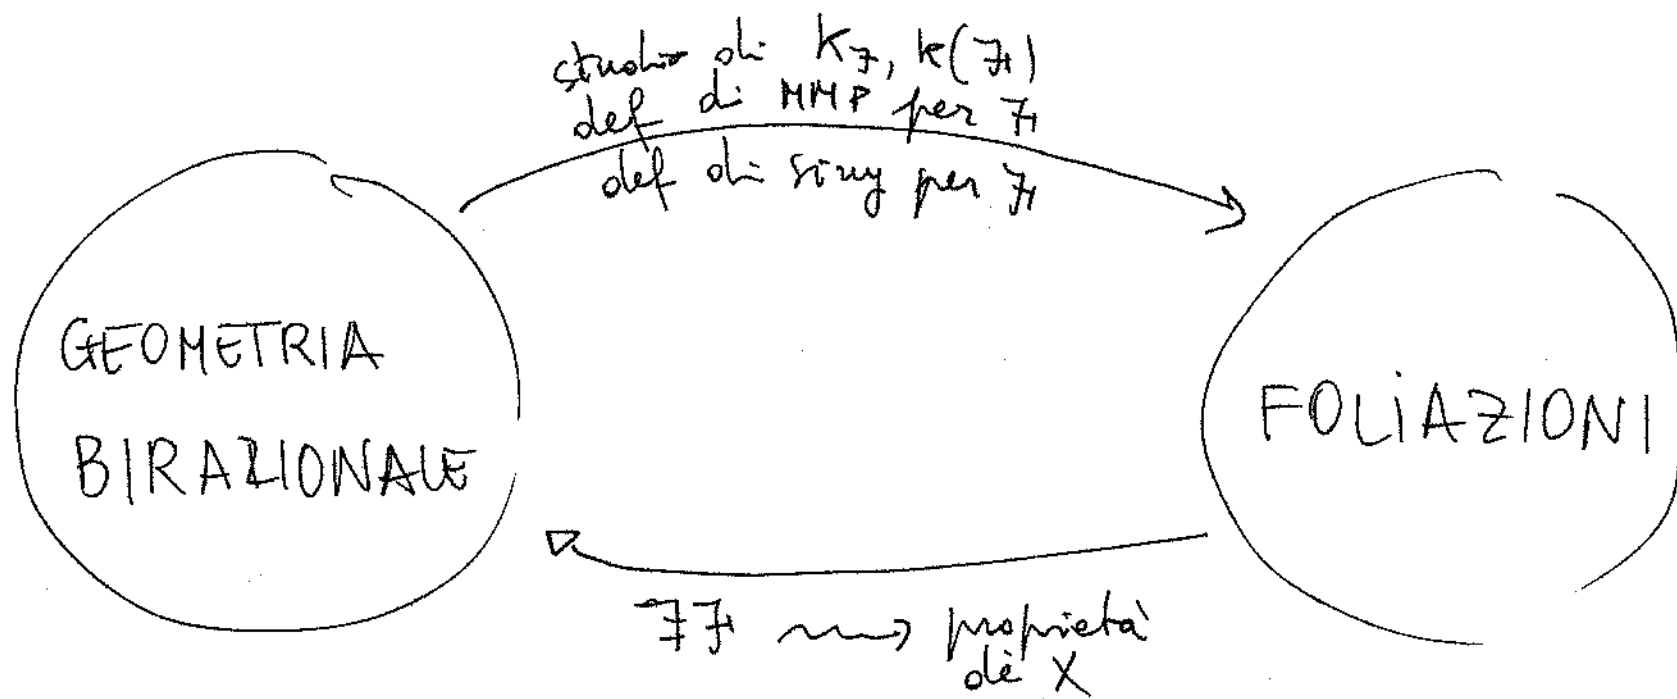 studio di K_F, k(F)
def di MMP per F
def di sing per F
GEOMETRIA
BIRAZIONALE
FOLIAZIONI
∃F ⇝ proprietà
di X